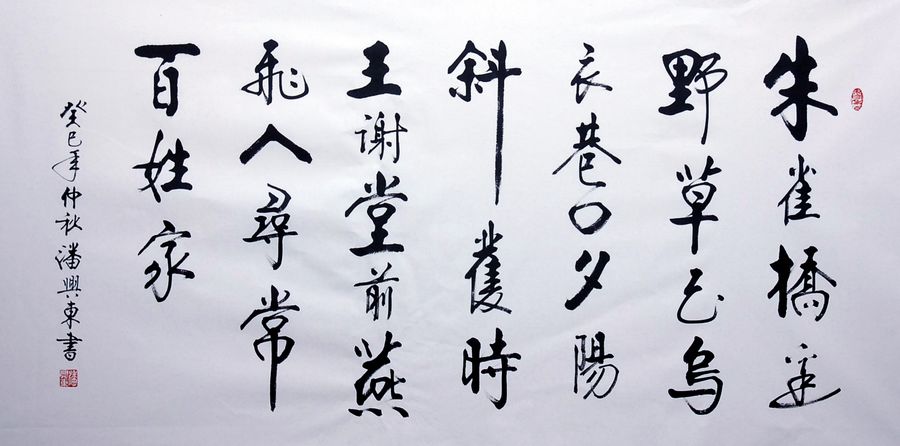 朱雀橋邊
野草花烏
衣巷口夕陽
斜舊時
王謝堂前燕
飛入尋常
百姓家
癸巳年仲秋潘興東書